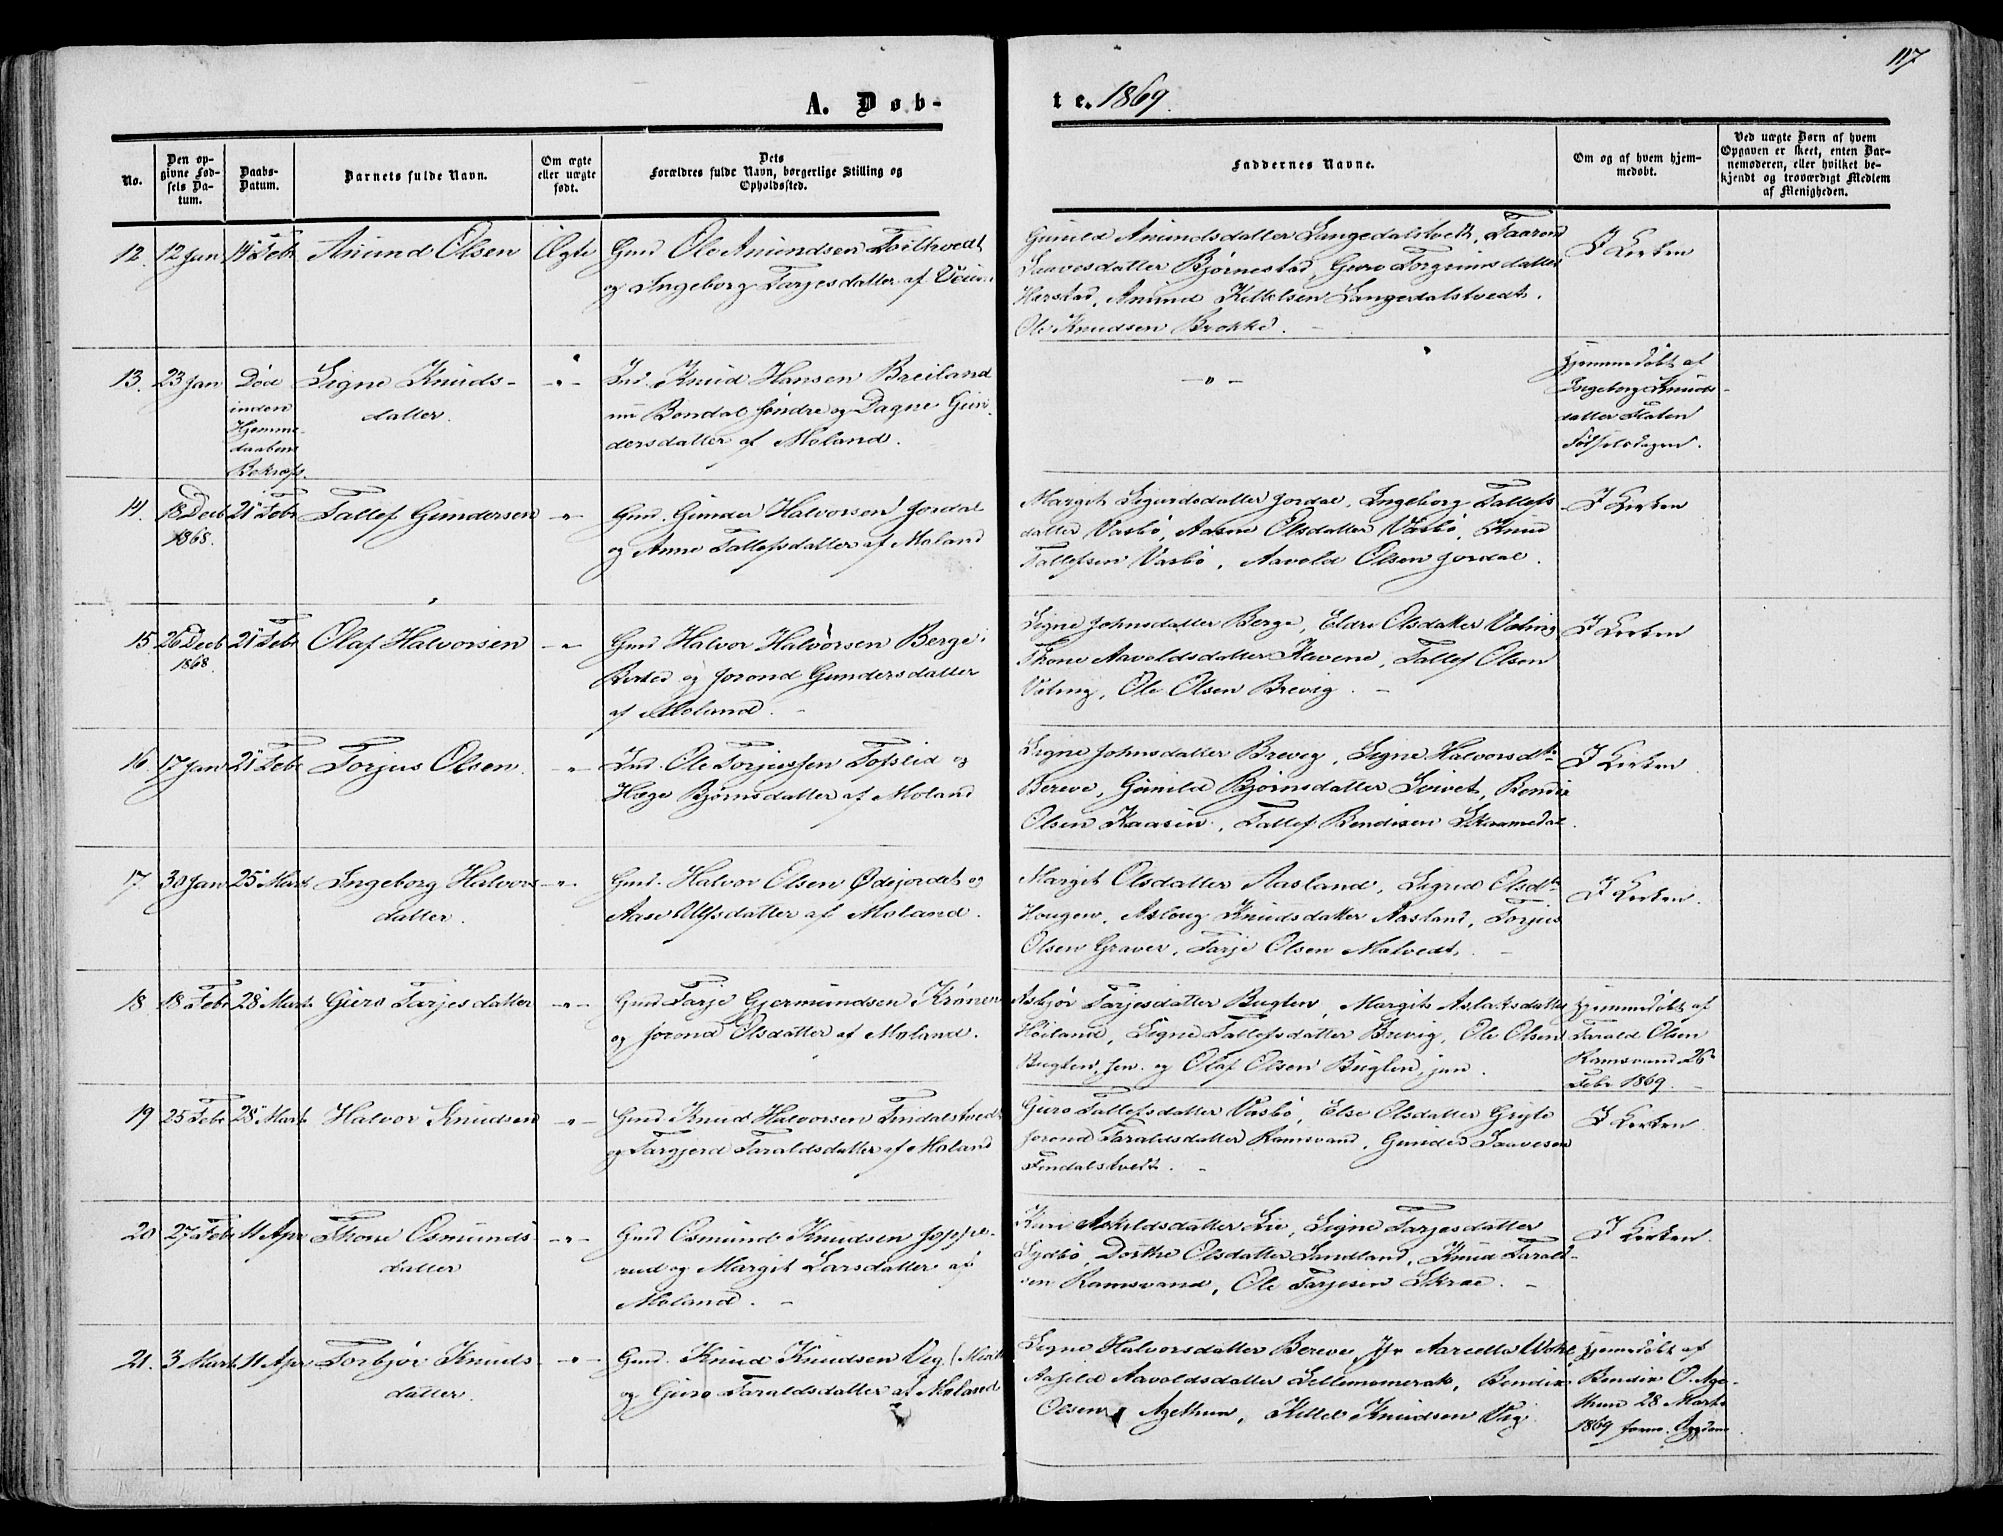 117
A. Døb-
te. 1869.
No.
Den op-
givne Fød-
sels Da-
tum.
Daabs-
Datum.
Barnets fulde Navn.
Om ægte
eller uægte
født.
Dets
Forældres fulde Navn, borgerlige Stilling og
Opholdssted.
Faddernes Navne.
Om og af hvem hjem-
medøbt.
Ved uægte Børn af hvem
Opgaven er skeet, enten Bar-
nemoderen, eller hvilket be-
kjendt og troværdigt Medlem
af Menigheden.
12. 12 Jan 14 Febr Anund Olsen Ægte
Gmd Ole Anundsen
og Ingeborg Tarjesdatter af
Gunild Anundsdatter Langedalstvedt, Taaron
Saavesdatter Bjørnestad, Guro Torgrimsdatter
Harstad, Anund Kittelsen Langedalstvedt.
Ole Knudsen Brokke.
I Kirken
13. 23 Jan Død
inden
Hjemme-
daabens
Bekræft.
Signe Knuds-
datter.
Ind. Knud Hansen Breiland
nu Bondal søndre og Dagne Gun-
dersdatter af Moland.
Hjemmedøbt af
Ingeborg Knuds-
datter Flaten
Fødselsdagen.
14. 18 Decb 21 Febr Tallef Gundersen
1868.
Gmd. Gunder Halvorsen Jordal
og Anne Tallefsdatter af Moland
Margit Sigurdsdatter Jordal, Ingeborg Tallefs
datter Vasbø, Aasne Olsdatter Vasbø, Knud
Tallefsen Vasbø, Aavold Olsen Jordal.
I Kirken
15 26 Decb 21 Febr Olaf Halvorsen
1868.
Gmd Halvor Halvorsen Berge i
og Jorond Gundersdatter
af Moland.
Signe Johnsdatter Berge, Eldri Olsdatter
Thone Aavoldsdatter Klevene, Tallef Olsen
Ole Olsen Brevig.
I Kirken
16. 17 Jan 21 Febr Torjus Olsen.
Ind. Ole Torjussen Tofslid og
Hæge Bjørnsdatter af Moland
Signe Johnsdatter Brevig, Signe Halvorsdtr
Bereve, Gunild Bjørnsdatter Bendix
Olsen Kaasen, Tallef Bendixen Skaamedal.
I Kirken
17. 30 Jan 25 Marts Ingeborg Halvors
datter.
Gmd. Halvor Olsen Ødejordet og
Aase Ulfsdatter af Moland.
Margit Olsdatter Aasland, Sigrid Olsdtr
Hougen, Asloug Knudsdatter Aasland, Torjus
Olsen Graver, Tarje Olsen Malvedt.
I Kirken.
18 18 Febr 28 Marts Guro Tarjesdatter
Gmd Tarje Gjermundsen Krónen
og Jorond Olsdatter af Moland.
Asbjør Tarjesdatter Buglen, Margit Aslaksdatter
Høiland, Signe Tallefsdatter Brevig, Ole Olsen
Buglen, sen. og Olaf Olsen Buglen, jun.
Hjemmedøbt af
Tarald Olsen
Ramsvand 26
Febr 1869.
19 25 Febr 28 Marts Halvor Knudsen
Gmd. Knud Halvorsen Findalstvedt
og Targjerd Taraldsdatter af Moland
Guro Tallefsdatter Vasbø, Else Olsdatter
Jorond Taraldsdatter Ramsvand, Gunder Saavesen
Findalstvedt.
I Kirken
20 27 Febr 11 Apr Thone Osmunds-
datter
Gmd Osmund Knudsen
og Margit Larsdatter af
Moland.
Kari Askildsdatter Lie, Signe Tarjesdatter
Dorthe Olsdatter Sandland, Knud Tarald-
sen Ramsvand, Ole Tarjesen Skrae.
I Kirken.
21. 3 Marts 11 Apr Torbjør Knuds-
datter.
Gmd. Knud Knudsen
og Guro Taraldsdatter af Moland
Signe Halvorsdatter Bereve,
Aavoldsdatter Bendix
Olsen Agethun, Kittel Knudsen
Hjemmedøbt af
Bendix O. Age-
thun 28 Marts
1869